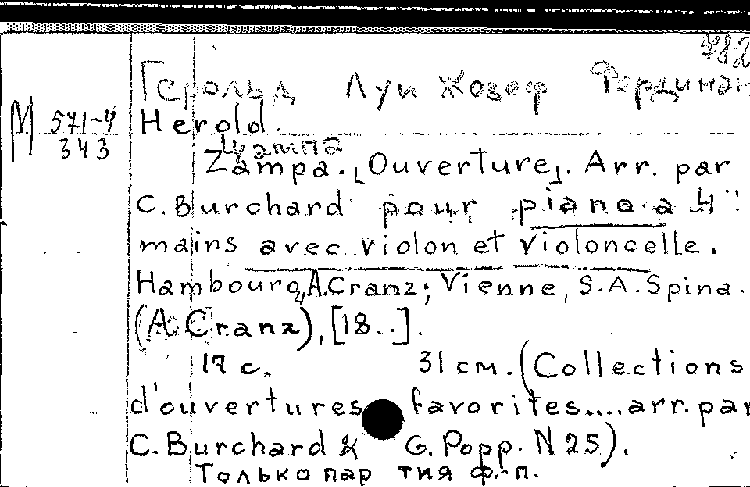 782
Герольд Луи Жозеф Фердинан
М 571-4
343
Herold.
Цампа
Zampa. [Ouverture]. Arr. par
C. Burchard pour piano a 4
mains avec violon et violoncelle.
Hambourg, A. Cranz; Vienne, S.A. Spina.
(A. Cranz), [18..].
17 с. 31 см. (Collections
d'ouvertures favorites.... arr. par
C. Burchard & G. Popp. N 25).
Только пар тия ф.-п.